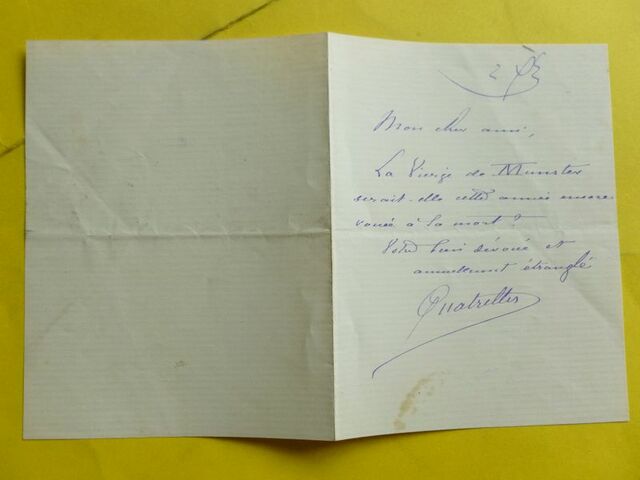 2
Mon cher ami,
La Vierge de Munster
serait-elle cette année encore
vouée à la mort ?
Votre bien dévoué et
annuellement étranglé
Quatrelles